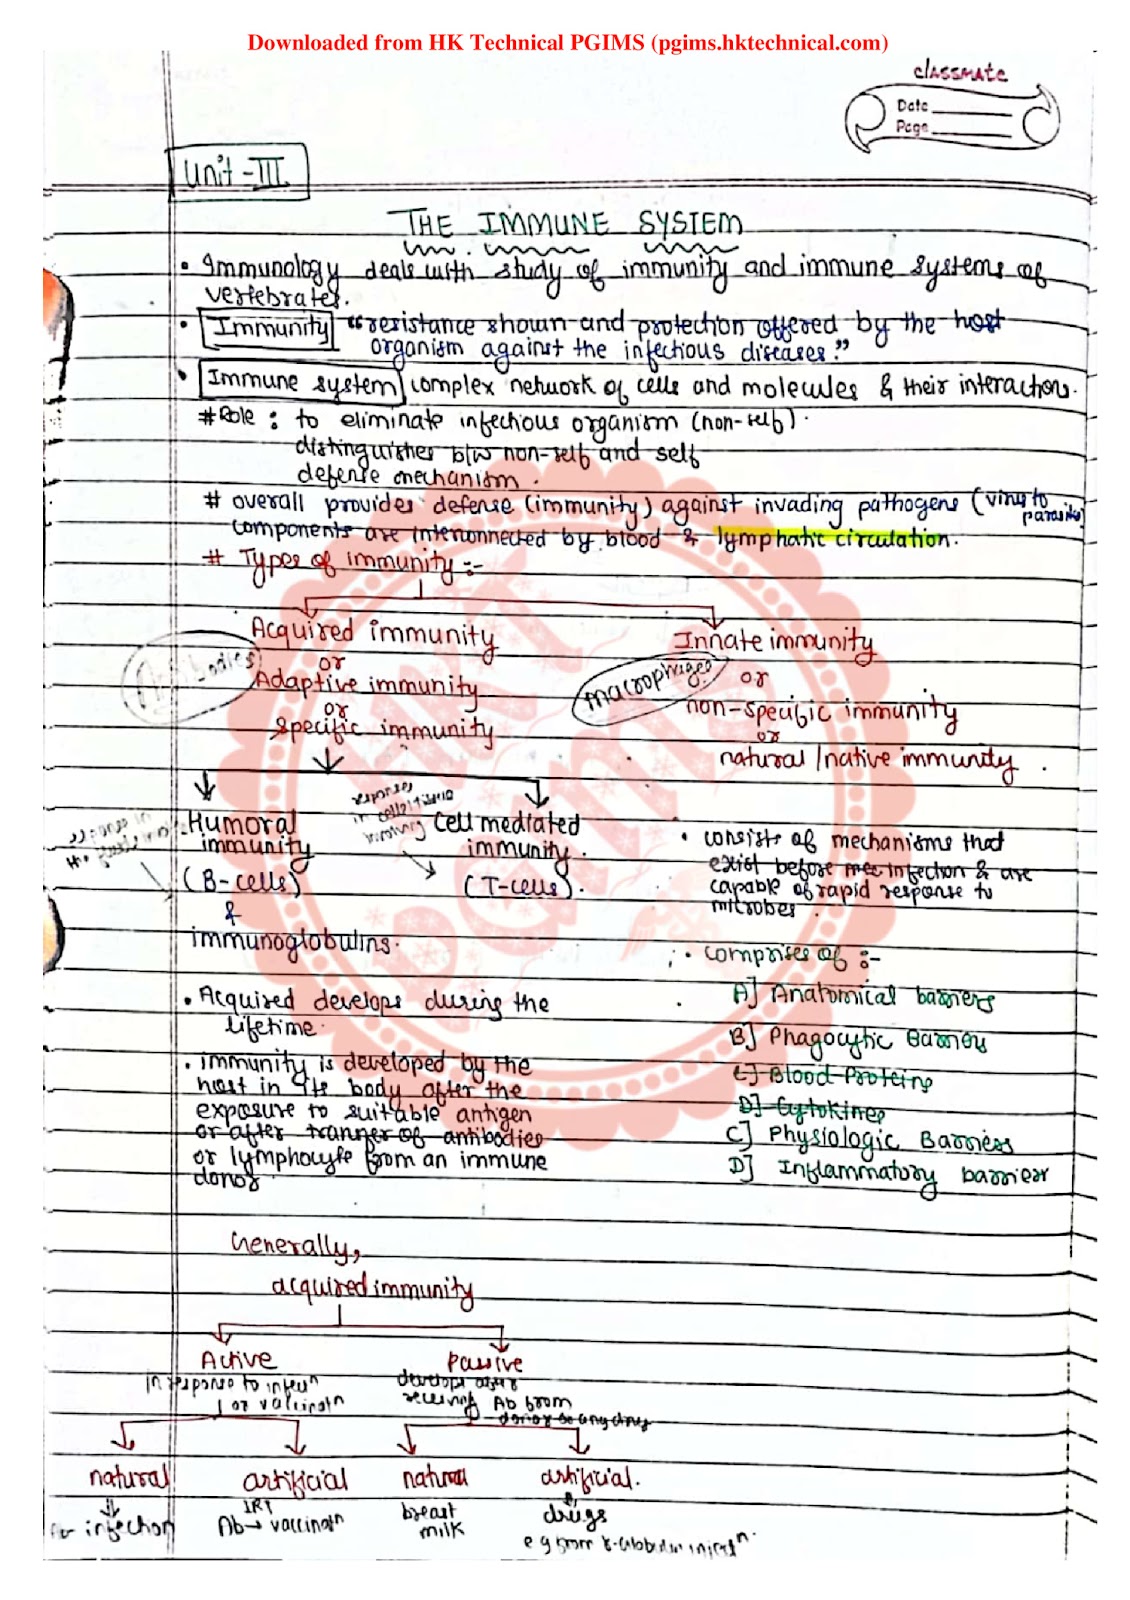 Downloaded from HK Technical PGIMS (pgims.hktechnical.com)
classmate
Date
Page
Unit - III
THE IMMUNE SYSTEM
• Immunology deals with study of immunity and immune systems of
vertebrates.
• Immunity "resistance shown and protection offered by the host
organism against the infectious diseases."
• Immune system complex network of cells and molecules & their interactions.
# Role : to eliminate infectious organism (non-self).
distinguishes b/w non-self and self
defense mechanism.
# overall provides defense (immunity) against invading pathogens (virus to
parasite)
components are interconnected by blood & lymphatic circulation.
# Types of immunity :-
Acquired immunity
or
Adaptive immunity
or
Specific immunity
Antibodies
Innate immunity
or
non-specific immunity
or
natural / native immunity.
macrophages
Humoral
immunity
(B-cells)
&
immunoglobulins.
response in
the
Cell mediated
immunity.
(T-cells).
responses
in
involving
• consists of mechanisms that
exist before infection & are
capable of rapid response to
microbes.
• comprises of :-
A] Anatomical barriers
B] Phagocytic Barriers
C] Blood Proteins
D] Cytokines
C] Physiologic Barriers
D] Inflammatory barrier
• Acquired develops during the
lifetime.
• immunity is developed by the
host in its body after the
exposure to suitable antigen
or after transfer of antibodies
or lymphocyte from an immune
donor
Generally,
acquired immunity
Active
in response to infecⁿ
or vaccinatⁿ
Passive
develops after
receiving Ab from
donor or any drug
natural
infection
artificial
Ab → vaccinatⁿ
natural
breast
milk
artificial.
drugs
e.g from γ-globulin injectⁿ.